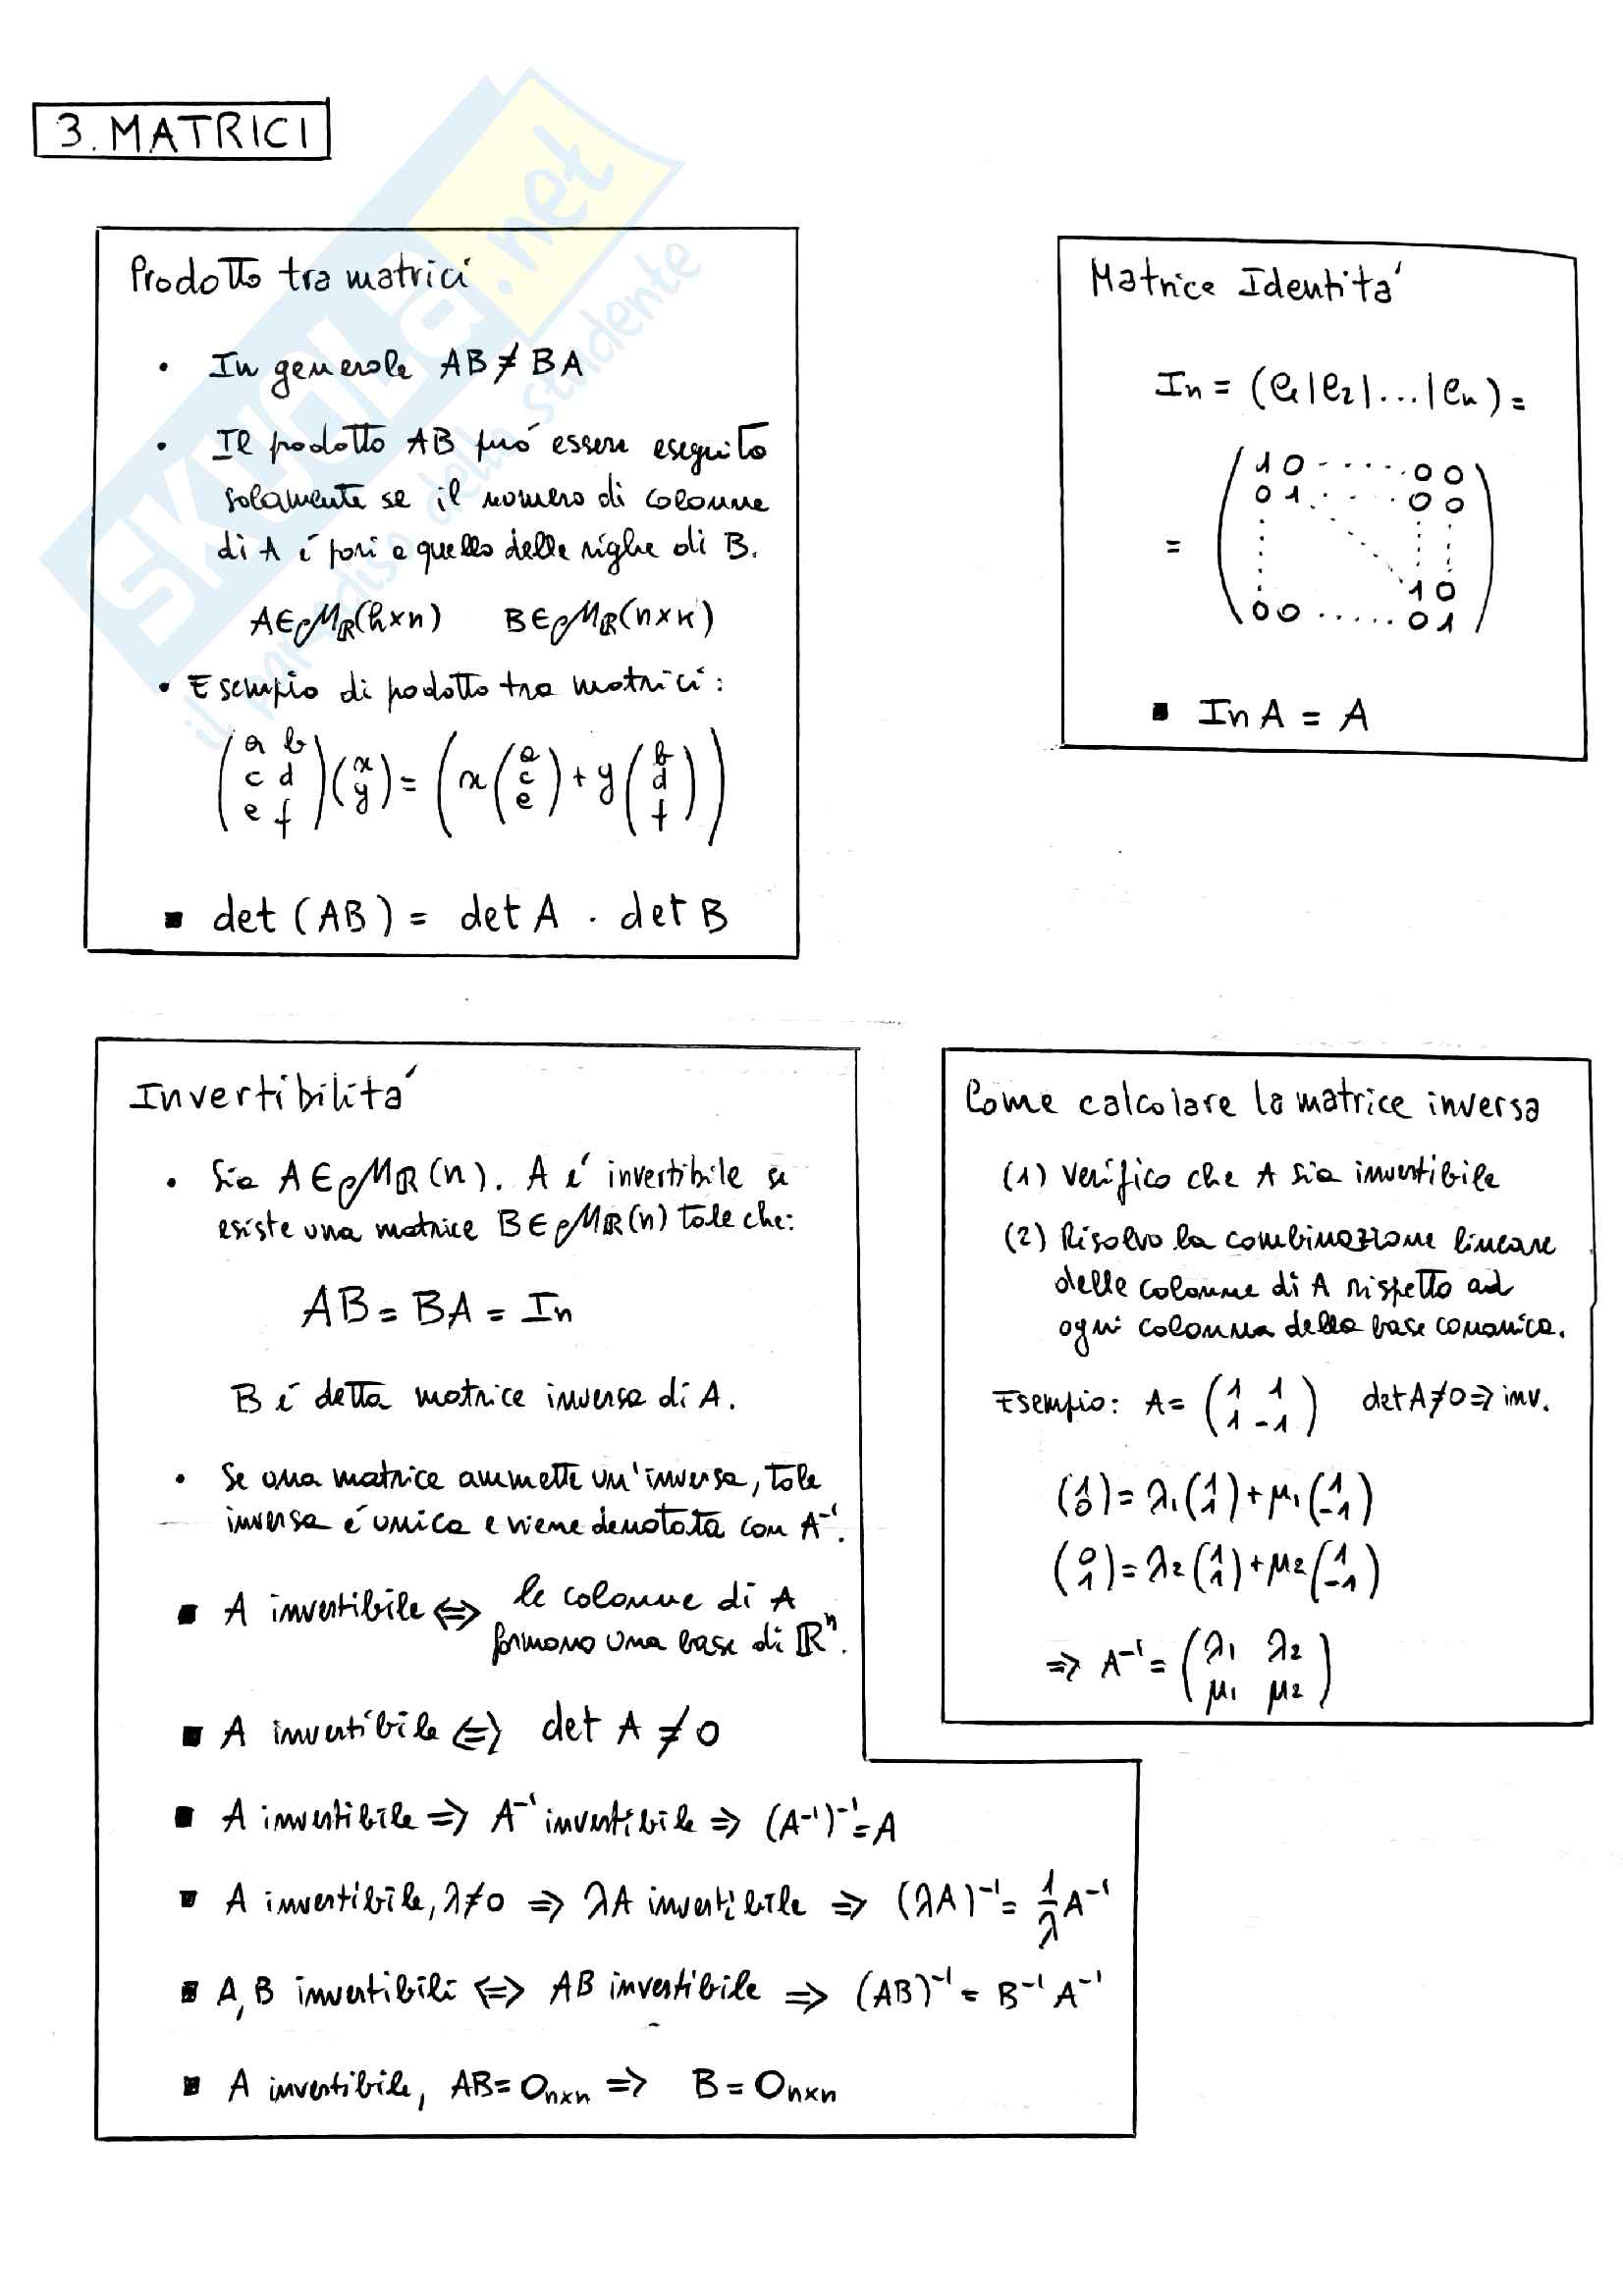 3. MATRICI
Prodotto tra matrici
• In generale AB ≠ BA
• Il prodotto AB puó essere eseguito
solamente se il numero di colonne
di A é pari a quello delle righe di B.
A∈ℳℝ(h×n) B∈ℳℝ(n×k)
• Esempio di prodotto tra matrici:
(a b
c d
e f) (x
y) = (x (a
c
e) + y (b
d
f))
▪ det (AB) = det A · det B
Matrice Identitá
In = (e1|e2|...|en) =
= (1 0 ..... 0 0
0 1 ..... 0 0
1 0
0 0 ..... 0 1)
▪ In A = A
Invertibilitá
• Sia A∈ℳℝ(n). A é invertibile se
esiste una matrice B∈ℳℝ(n) tale che:
AB = BA = In
B é detta matrice inversa di A.
• Se una matrice ammette un'inversa, tale
inversa é unica e viene denotata con A⁻¹.
▪ A invertibile ⇔ le colonne di A
formano una base di ℝⁿ.
▪ A invertibile ⇔ det A ≠ 0
▪ A invertibile ⇒ A⁻¹ invertibile ⇒ (A⁻¹)⁻¹ = A
▪ A invertibile, λ≠0 ⇒ λA invertibile ⇒ (λA)⁻¹ = 1/λ A⁻¹
▪ A, B invertibili ⇔ AB invertibile ⇒ (AB)⁻¹ = B⁻¹ A⁻¹
▪ A invertibile, AB = On×n ⇒ B = On×n
Come calcolare la matrice inversa
(1) Verifico che A sia invertibile
(2) Risolvo la combinazione lineare
delle colonne di A rispetto ad
ogni colonna della base canonica.
Esempio: A = (1 1
1 -1) det A≠0 ⇒ inv.
(1
0) = λ1 (1
1) + μ1 (1
-1)
(0
1) = λ2 (1
1) + μ2 (1
-1)
⇒ A⁻¹ = (λ1 λ2
μ1 μ2)
SKUOLA.net
il paradiso dello studente